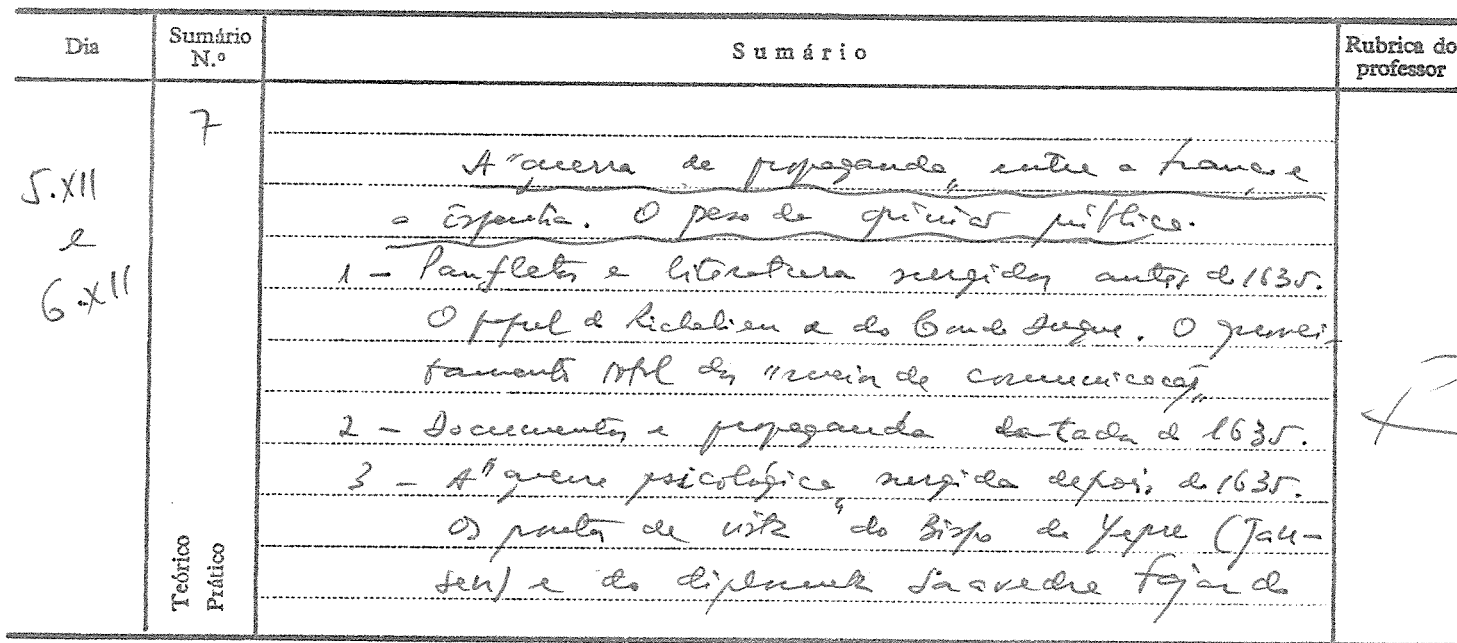 Dia
Sumário N.º
Sumário
Rubrica do professor
5.XII
e
6.XII
7
Teórico
Prático
A "guerra de propaganda„ entre a França e
a Espanha. O peso da opinião pública.
1 - Panfletos e literatura surgidos antes de 1635.
O papel de Richelieu e do Conde Duque. O aprovei-
tamento dos "meios de comunicação„
2 - Documentos e propaganda datada de 1635.
3 - A "guerra psicológica„ surgida depois de 1635.
Os pontos de vista do Bispo de Yepre (Jan-
sen) e do diplomata Saavedra Fajardo